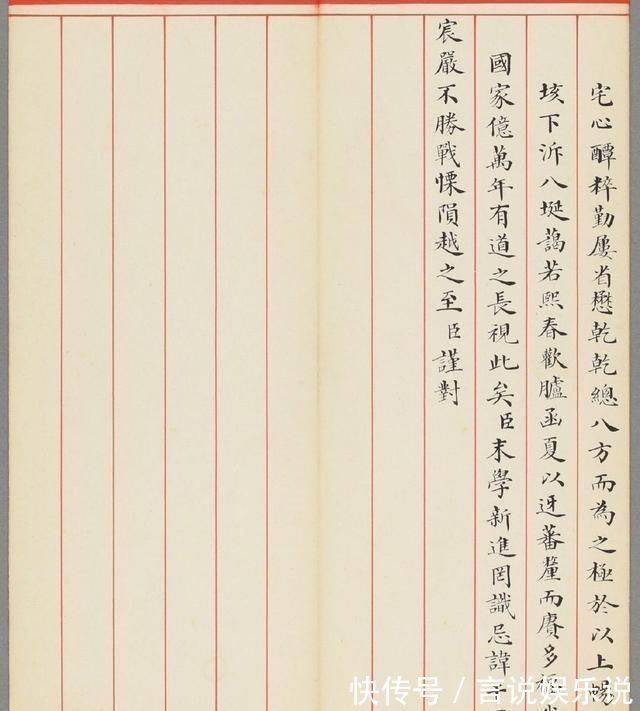 宅心醰粹勤屢省懋乾乾總八方而為之極於以上暢
垓下泝八埏藹若熙春歡臚函夏以迓蕃釐而賡多
國家億萬年有道之長視此矣臣末學新進罔識忌諱干
宸嚴不勝戰慄隕越之至臣謹對
快传号/言说娱乐说